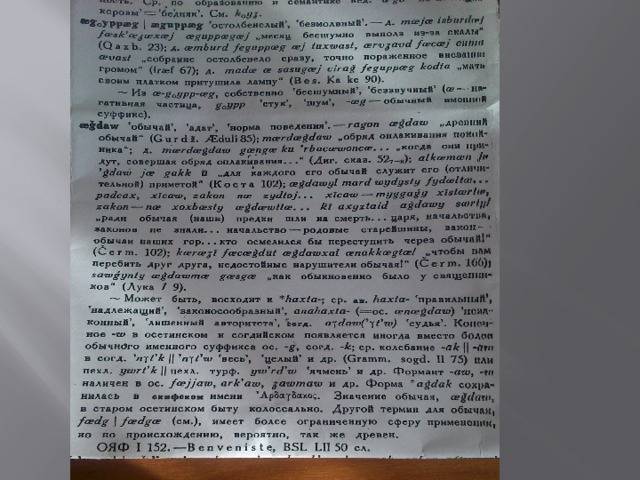 ность. Ср. по образованию и семантике вед.
коровы' = 'бедняк'. См.
ægₒyppæg | æguppæg 'остолбенелый', 'безмолвный'. — д. mæjæ isburdæj
fæsk'æʒæxæj æguppægæj „месяц бесшумно выполз из-за скалы"
(Qazb. 23); д. æmburd feguppæg æj tuxwast, ærvʒavd fæcæj
ævast „собрание остолбенело сразу, точно пораженное внезапно
громом" (Iræf 67); д. madæ æ sasugæj ciraǧ feguppæg kodta „мать
своим платком притушила лампу" (Bes. Ka ke 90).
~ Из æ-gₒypp-æg, собственно 'бесшумный', 'беззвучный' (æ — не-
гативная частица, gₒypp 'стук', 'шум', -æg — обычный именной
суффикс).
æǧdaw 'обычай', 'адат', 'норма поведения'. — ragon æǧdaw „древний
обычай" (Gurdž. Æduli 85); mærdæǧdaw „обряд оплакивания покой-
ника"; д. mærdæǧdaw gængæ ku 'rbacæwoncæ... „когда они при-
дут, совершая обряд оплакивания..." (Диг. сказ. 52); alkæmæn je
'ǧdaw jæ gakk ū „для каждого его обычай служит его (отличи-
тельной) приметой" (Коста 102); æǧdawyl mard wydysty fydæltæ...
padcax, xicaw, zakon næ zydtoj... xicaw — myggaǧy xistærtæ,
zakon — næ xoxbæsty æǧdæwttæ... ki axyztaid aǧdawy
„ради обычая (наши) предки шли на смерть... царя, начальства,
законов не знали... начальство — родовые старейшины, закон —
обычаи наших гор... кто осмелился бы переступить через обычай!"
(Čerm. 102); kæræʒi fæcæǧdut æǧdawxal ænakkægtæ! „чтобы вам
перебить друг друга, недостойные нарушители обычая!" (Čerm. 166);
sawǧynty æǧdawmæ gæsgæ „как обыкновенно было у священни-
ков" (Лука I 9).
~ Может быть, восходит к *haxta-; ср. ав. haxta- 'правильный',
'надлежащий', 'законосообразный', anahaxta- (= ос. ænæǧdaw) 'неза-
конный', 'лишенный авторитета', согд. 'судья'. Конеч-
ное -w в осетинском и согдийском появляется иногда вместо более
обычного именного суффикса ос. -g, согд. -k; ср. колебание -ak ||
в согд. 'весь', 'целый' и др. (Gramm. sogd. II 75) или
пехл. ywrt'k || пехл. турф. yw'rd'w 'ячмень' и др. Формант -aw,
наличен в ос. fæjjaw, ark'aw, ʒawmaw и др. Форма *aǧdak сохра-
нилась в скифском имени 'Αρδαγδακος. Значение обычая, æǧdaw,
в старом осетинском быту колоссально. Другой термин для обычая,
fædg | fædgæ (см.), имеет более ограниченную сферу применения,
но по происхождению, вероятно, так же древен.
ОЯФ I 152. — Benveniste, BSL LII 50 сл.